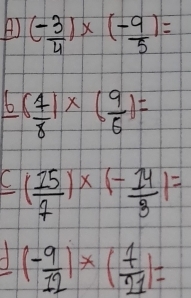 A) (-3/4) × (-9/5) =
b (4/8) × (9/6) =
c (15/7) × (-14/3) =
d (-9/12) × (7/21) =